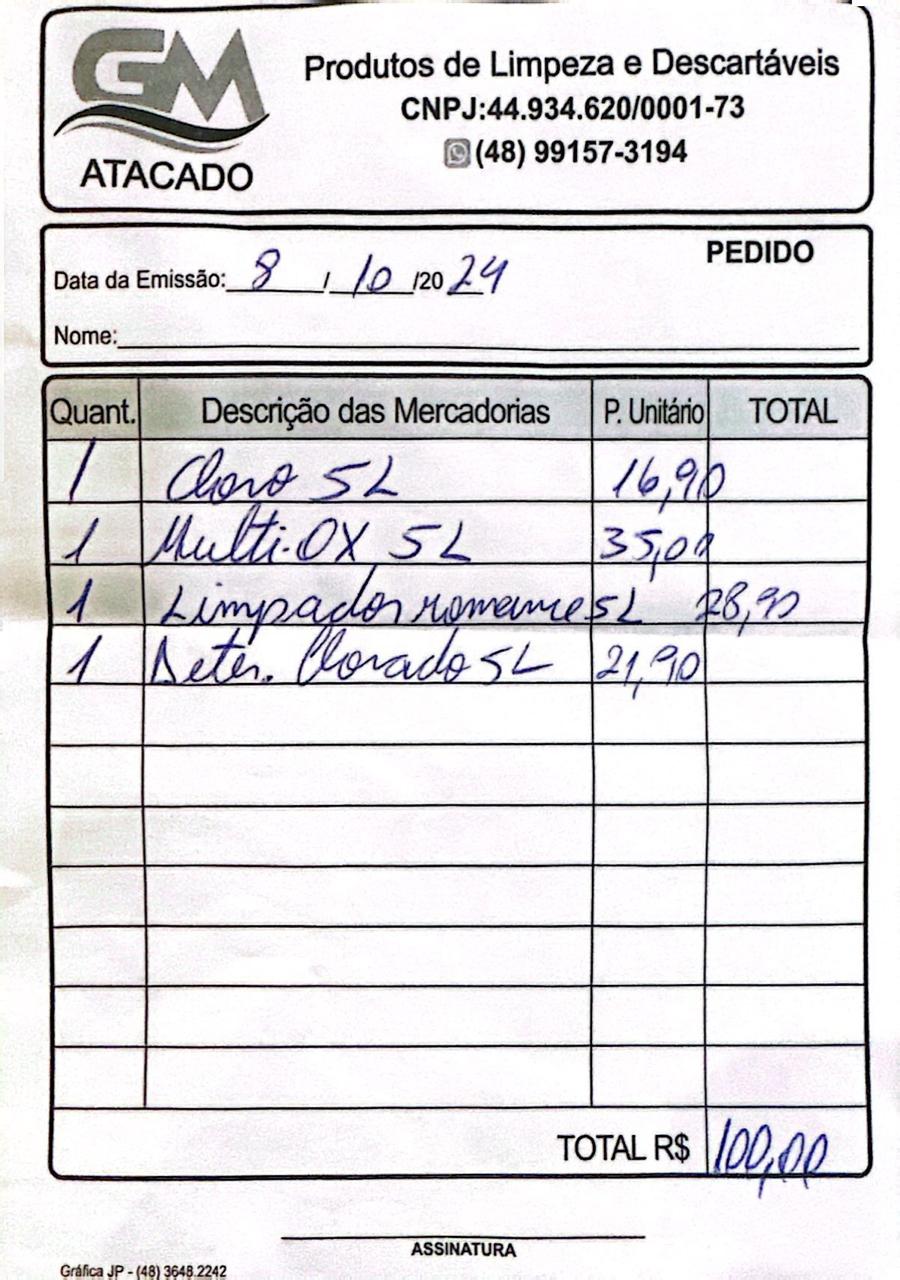 GM
ATACADO
Produtos de Limpeza e Descartáveis
CNPJ:44.934.620/0001-73
(48) 99157-3194
PEDIDO
Data da Emissão: 8 / 10 /20 24
Nome:
Quant. Descrição das Mercadorias P. Unitário TOTAL
1 Cloro 5L 16,90
1 Multi-OX 5L 35,00
1 Limpador romance 5L 28,90
1 Deter. Clorado 5L 21,90
TOTAL R$ 100,00
ASSINATURA
Gráfica JP - (48) 3648.2242